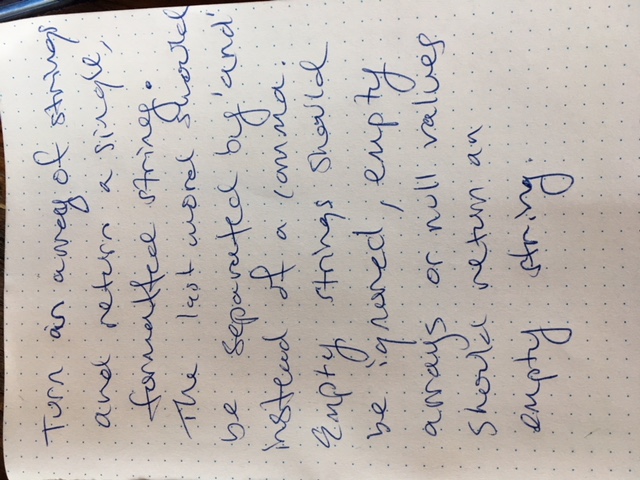 Turn an array of strings
and return a single,
formatted string.
The last word should
be separated by 'and'
instead of a comma.
Empty strings should
be ignored, empty
arrays or null values
should return an
empty string.